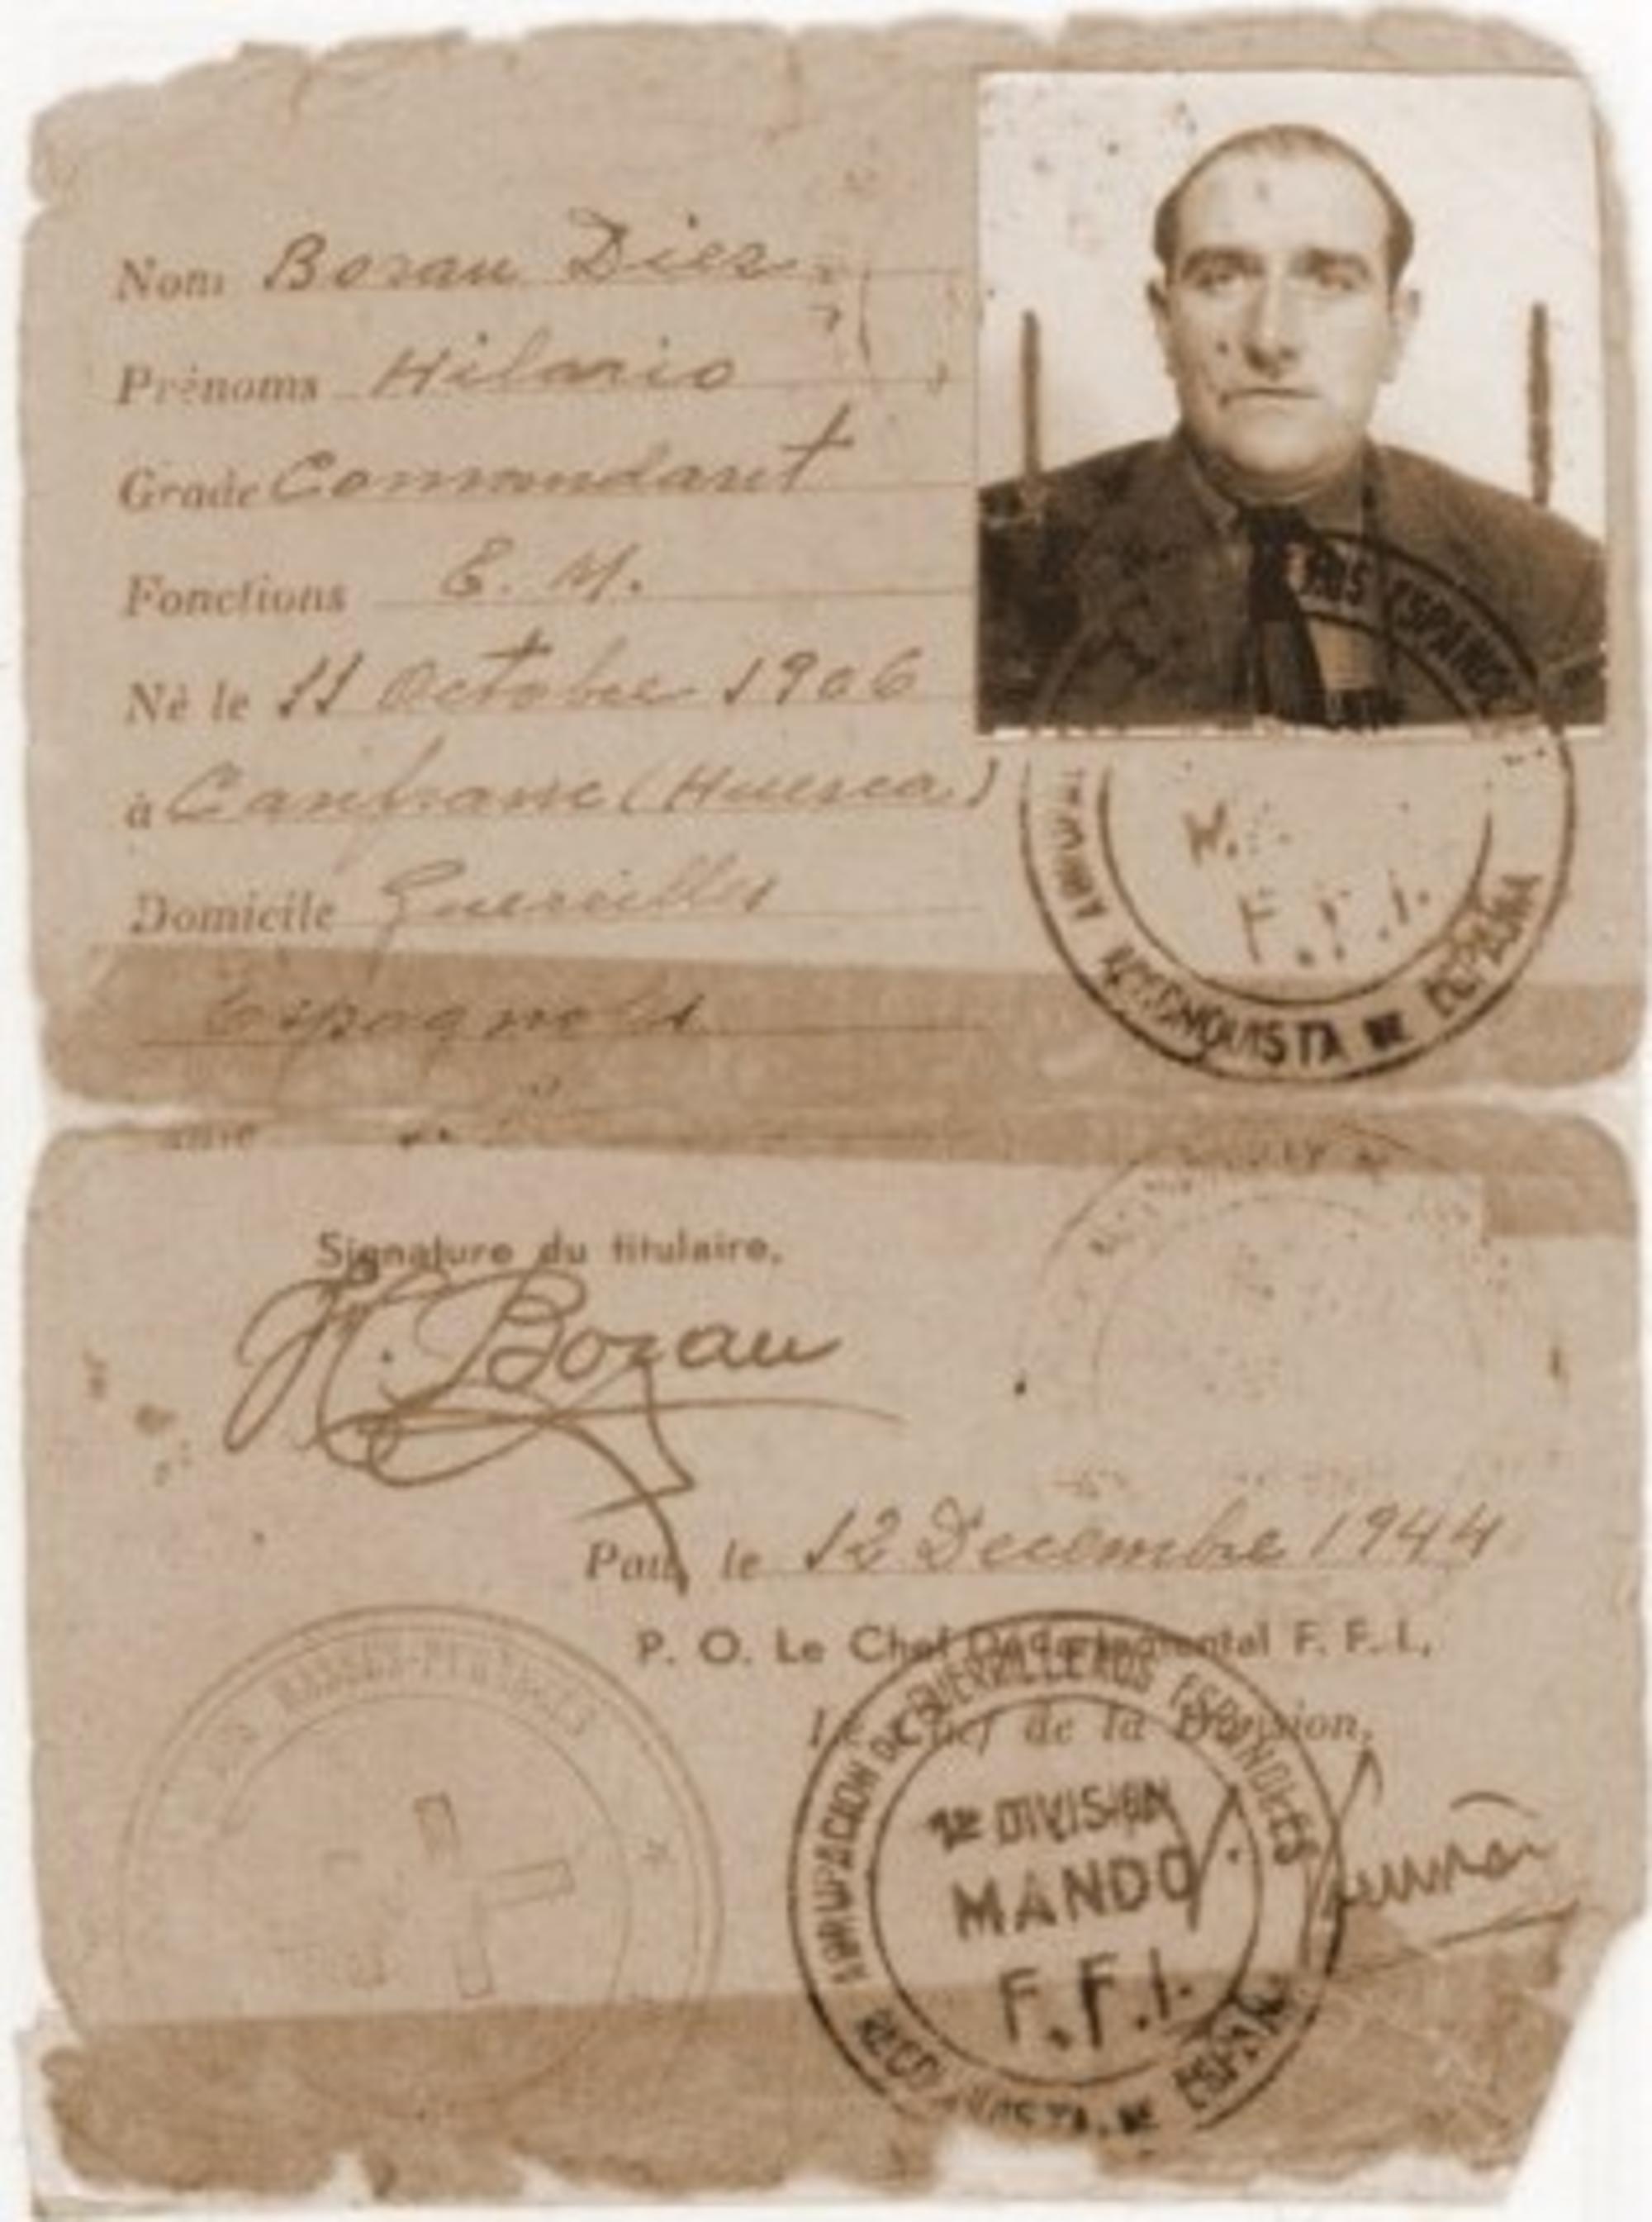 Nom Borau Diez
Prénoms Hilario
Grade Commandant
Fonctions E. M.
Né le 11 Octobre 1906
à Canfranc (Huesca)
Domicile Guerrilles
Espagnols
ESPAÑOLES
F.F.I.
RECONQUISTA DE ESPAÑA
Signature du titulaire,
H. Borau
Pau, le 12 Decembre 1944
P. O. Le Chef Départemental F. F. I.,
Le Chef de la Division,
BASSES-PYRÉNÉES
AGRUPACION DE GUERRILLEROS ESPAÑOLES
1re DIVISION
MANDO
F.F.I.
RECONQUISTA DE ESPAÑA